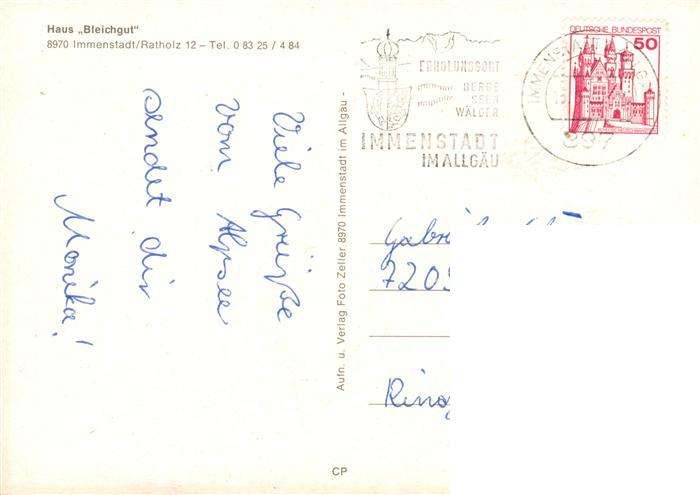 Haus „Bleichgut"
8970 Immenstadt/Ratholz 12 – Tel. 0 83 25 / 4 84
Viele Grüße
vom Alpsee
sendet dir
Monika!
Aufn. u. Verlag Foto Zeller 8970 Immenstadt im Allgäu -
CP
ERHOLUNGSORT
BERGE
SEEN
WÄLDER
IMMENSTADT
IM ALLGÄU
DEUTSCHE BUNDESPOST
50
897